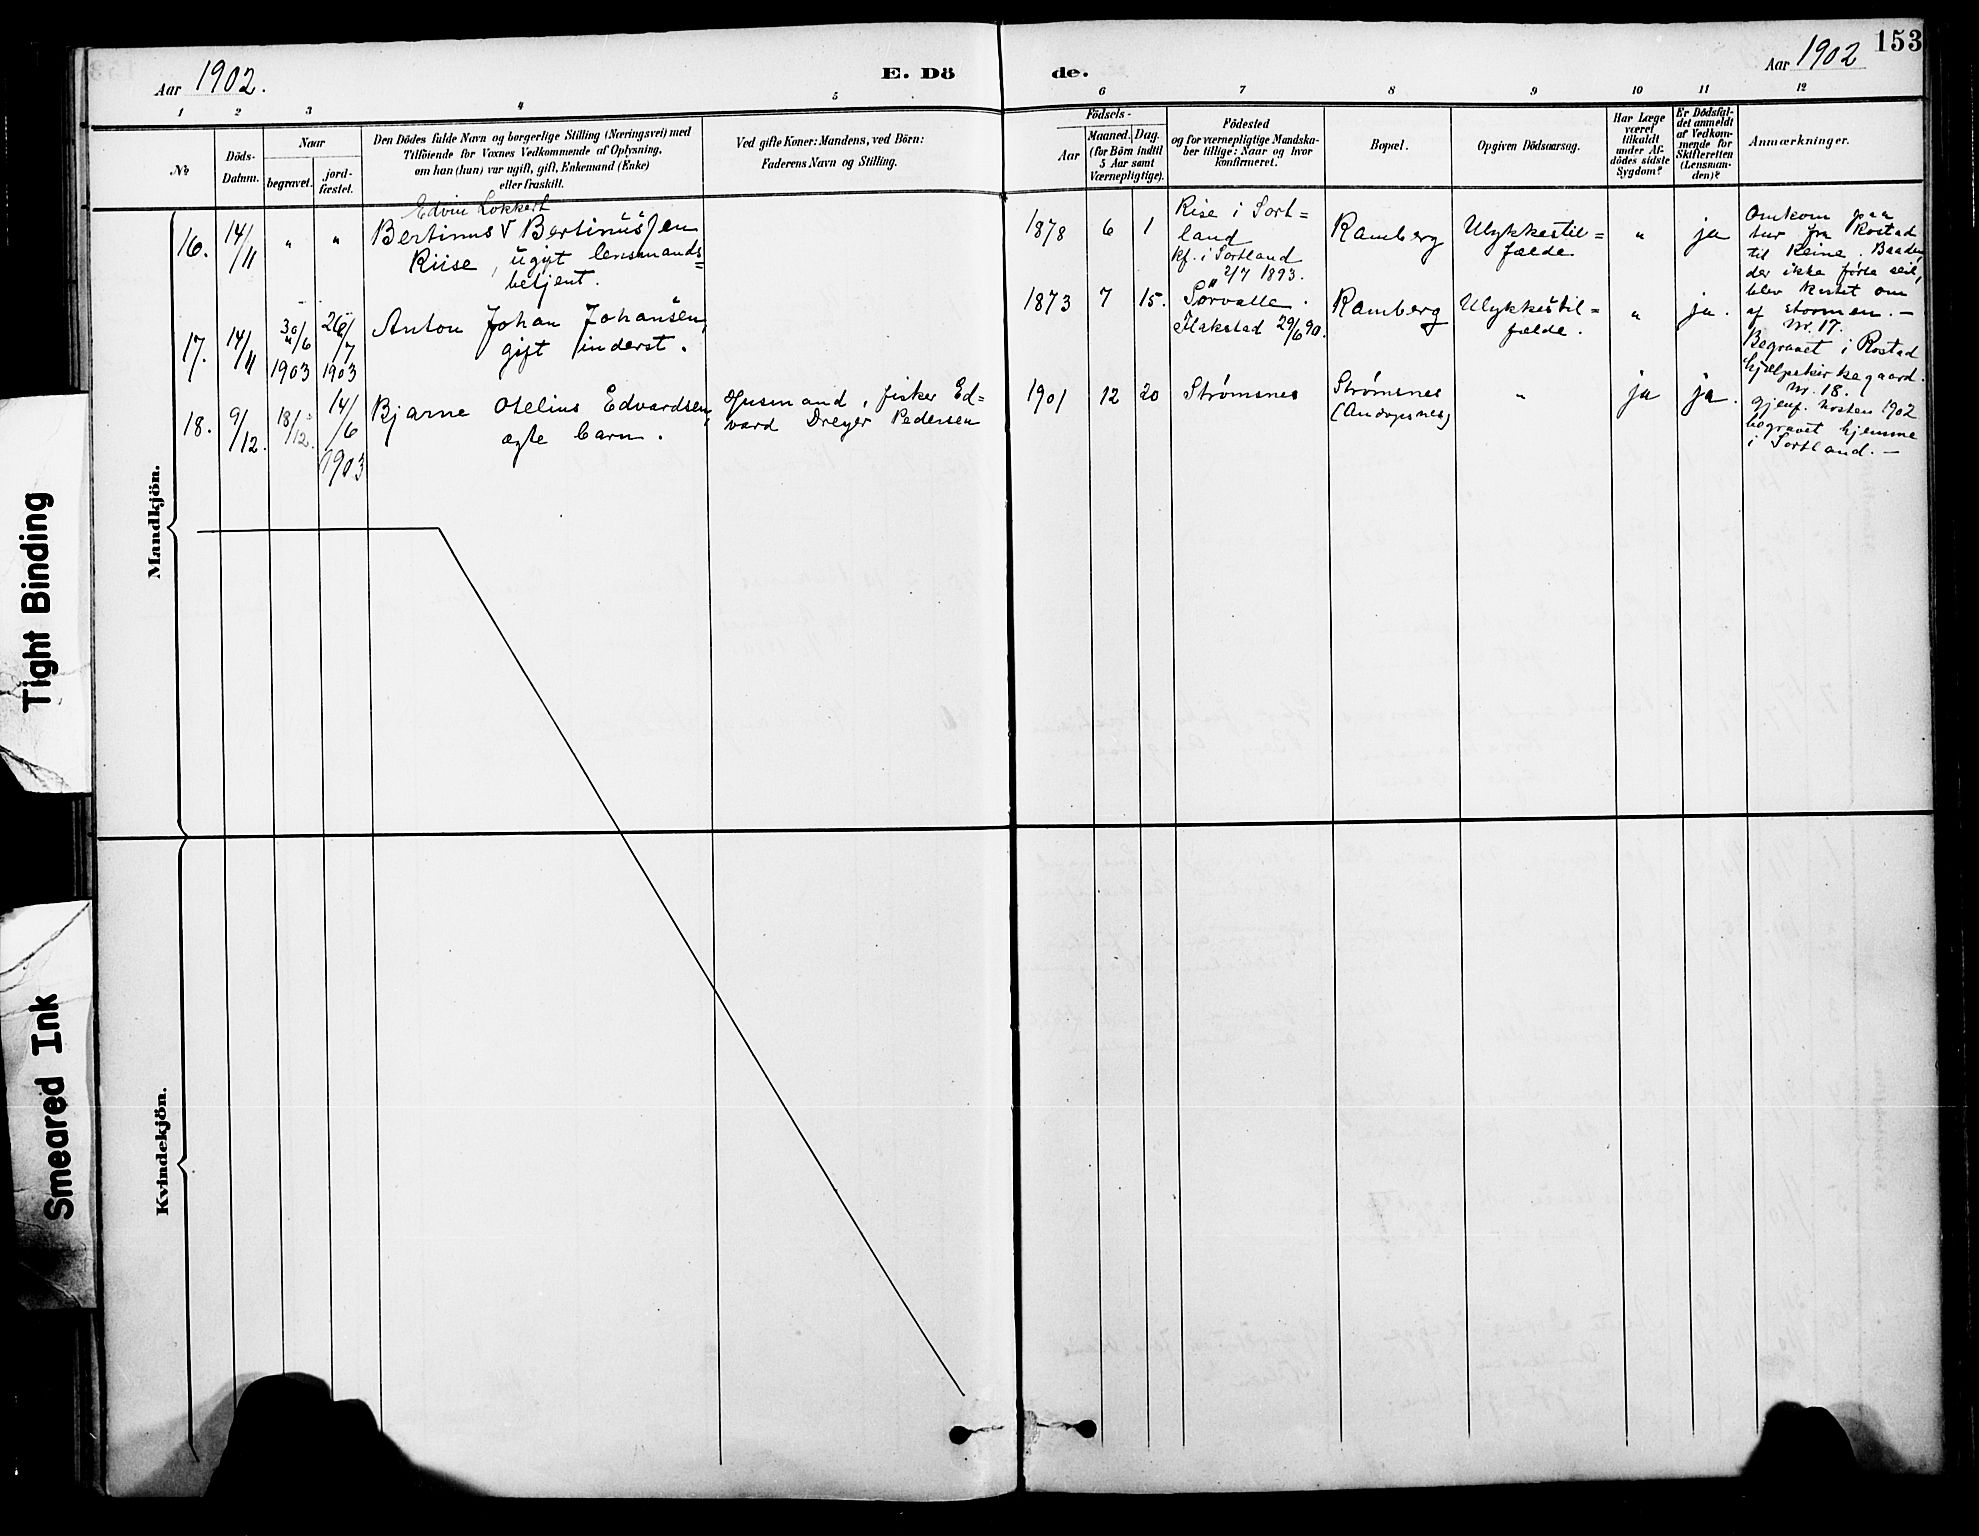 Aar 1902.
E. Dö
de.
Aar 1902
153
1
2
3
4
5
6
7
8
9
10
11
12
No
Döds-
Datum.
Naar
begravet.
jord-
fæstet.
Den Dödes fulde Navn og borgerlige Stilling (Næringsvei) med
Tilföiende for Voxnes Vedkommende af Oplysning,
om han (hun) var ugift, gift, Enkemand (Enke)
eller fraskilt.
Ved gifte Koner: Mandens, ved Börn:
Faderens Navn og Stilling.
Födsels-
Aar
Maaned.
Dag.
(for Börn indtil
5 Aar samt
Værnepligtige).
Födested
og for værnepligtige Mandska-
ber tillige: Naar og hvor
konfirmeret.
Bopæl.
Opgiven Dödsaarsag.
Har Læge
været
tilkaldt
under Af-
dödes sidste
Sygdom?
Er Dödsfal-
det anmeldt
af Vedkom-
mende for
Skifteretten
(Lensman-
den)?
Anmærkninger.
Mandkjön.
16.
14/11
"
"
Edvin Lokkert
Bertinus V Bertinussen
Riise, ugift lensmands=
betjent.
1878
6
1
Rise i Sort=
land
kf. i Sortland
2/7 1893.
Ramberg
Ulykkestil=
fælde
"
ja
Omkom paa
tur fra Rostad
til Reine. Baaden,
der ikke førte seil,
blev kastet om
af stormen. —
17.
14/11
30/6
1903
26/7
1903
Anton Johan Johansen,
gift inderst.
1873
7
15.
Sørvalle.
Flakstad 29/6 90.
Ramberg
Ulykkestil=
fælde.
"
ja.
Nr. 17.
Begravet i Rostad
hjælpekirkegaard.
18.
9/12.
18/12.
14/6
1903
Bjarne Otelius Edvardsen,
ægte barn.
Husmand, fisker Ed=
vard Dreyer Pedersen
1901
12
20
Strømsnes
Strømsnes
(Andopsnes)
"
ja
ja.
Nr. 18.
gjenf. høsten 1902
begravet hjemme
i Sortland. —
Kvindekjön.
Tight Binding
Smeared Ink